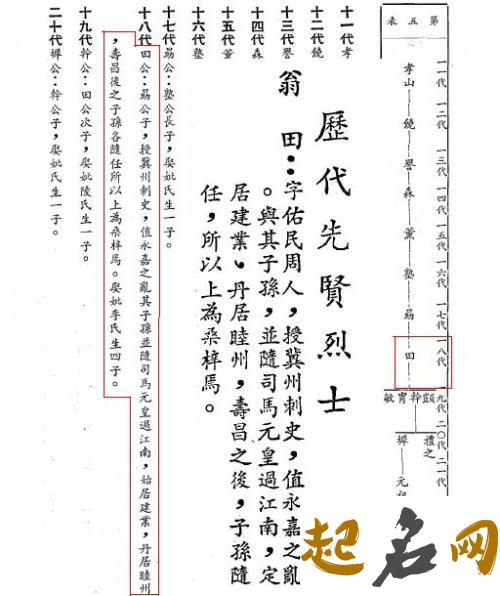 第五表
一一代 一二代 一三代 一四代 一五代 一六代 一七代 一八代 一九代 二〇代 二一代
孝山 饒 譽 森 薰 塾 易 田
幹
敏
禮之
樨 元
歷代先賢烈士
翁田：字佑民周人，授冀州刺史，值永嘉之亂
。與其子孫，並隨司馬元皇過江南，定
居建業、丹居睦州，壽昌之後，子孫隨
任，所以上為桑梓焉。
十一代孝
十二代饒
十三代譽
十四代森
十五代薰
十六代塾
十七代易公：塾公長子，娶妣氏生一子。
十八代田公：易公子，授冀州刺史，值永嘉之亂其子孫並隨司馬元皇過江南，始居建業，丹居睦州
，壽昌後之子孫各隨任所以上為桑梓焉。娶妣李氏生四子。
十九代幹公：田公次子，娶妣陵氏生一子。
二十代樨公：幹公子，娶妣氏生一子。
起名网